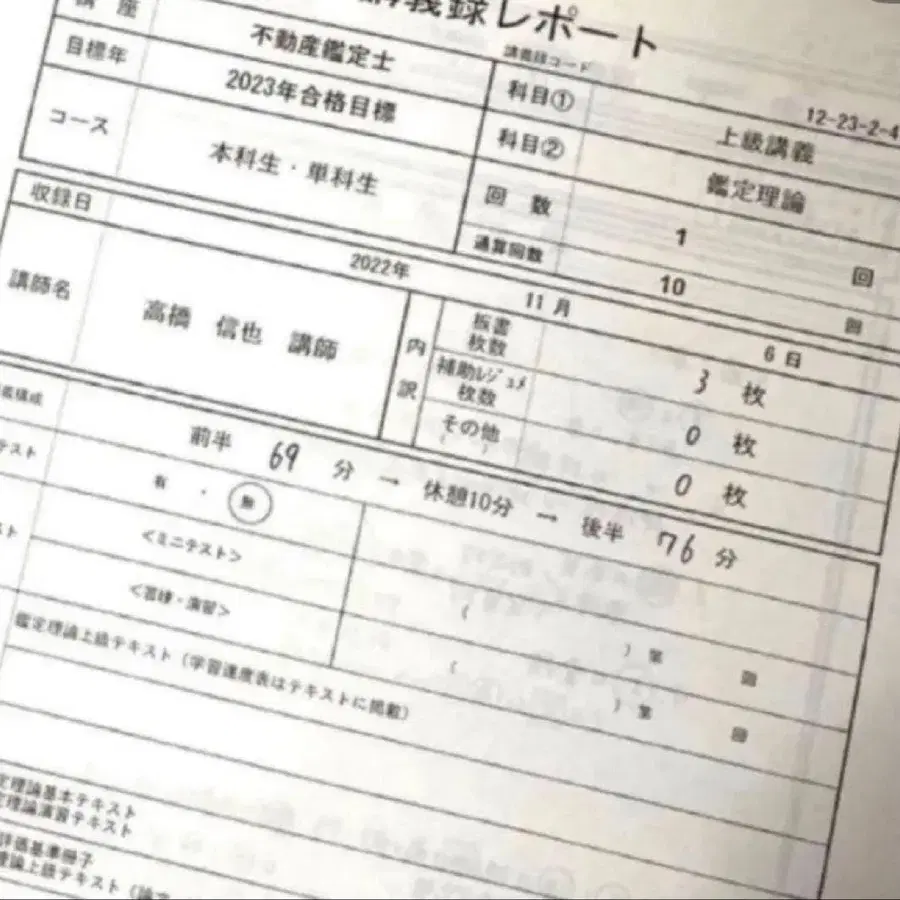 講義録レポート
講座 不動産鑑定士
講義録コード 12-23-2-4
目標年 2023年合格目標
科目① 上級講義
コース 本科生・単科生
科目② 鑑定理論
回数 1 回
通算回数 10 回
収録日 2022年 11月 6日
講師名 高橋 信也 講師
内訳
板書枚数 3 枚
補助レジュメ枚数 0 枚
その他 ( ) 0 枚
義構成 前半 69 分 → 休憩10分 → 後半 76 分
テスト 有 ・ 無
スト <ミニテスト> ( ) 第 回
<答練・演習> ( ) 第 回
鑑定理論上級テキスト(学習進度表はテキストに掲載)
定理論基本テキスト
定理論演習テキスト
評価基準冊子
理論上級テキスト(論文